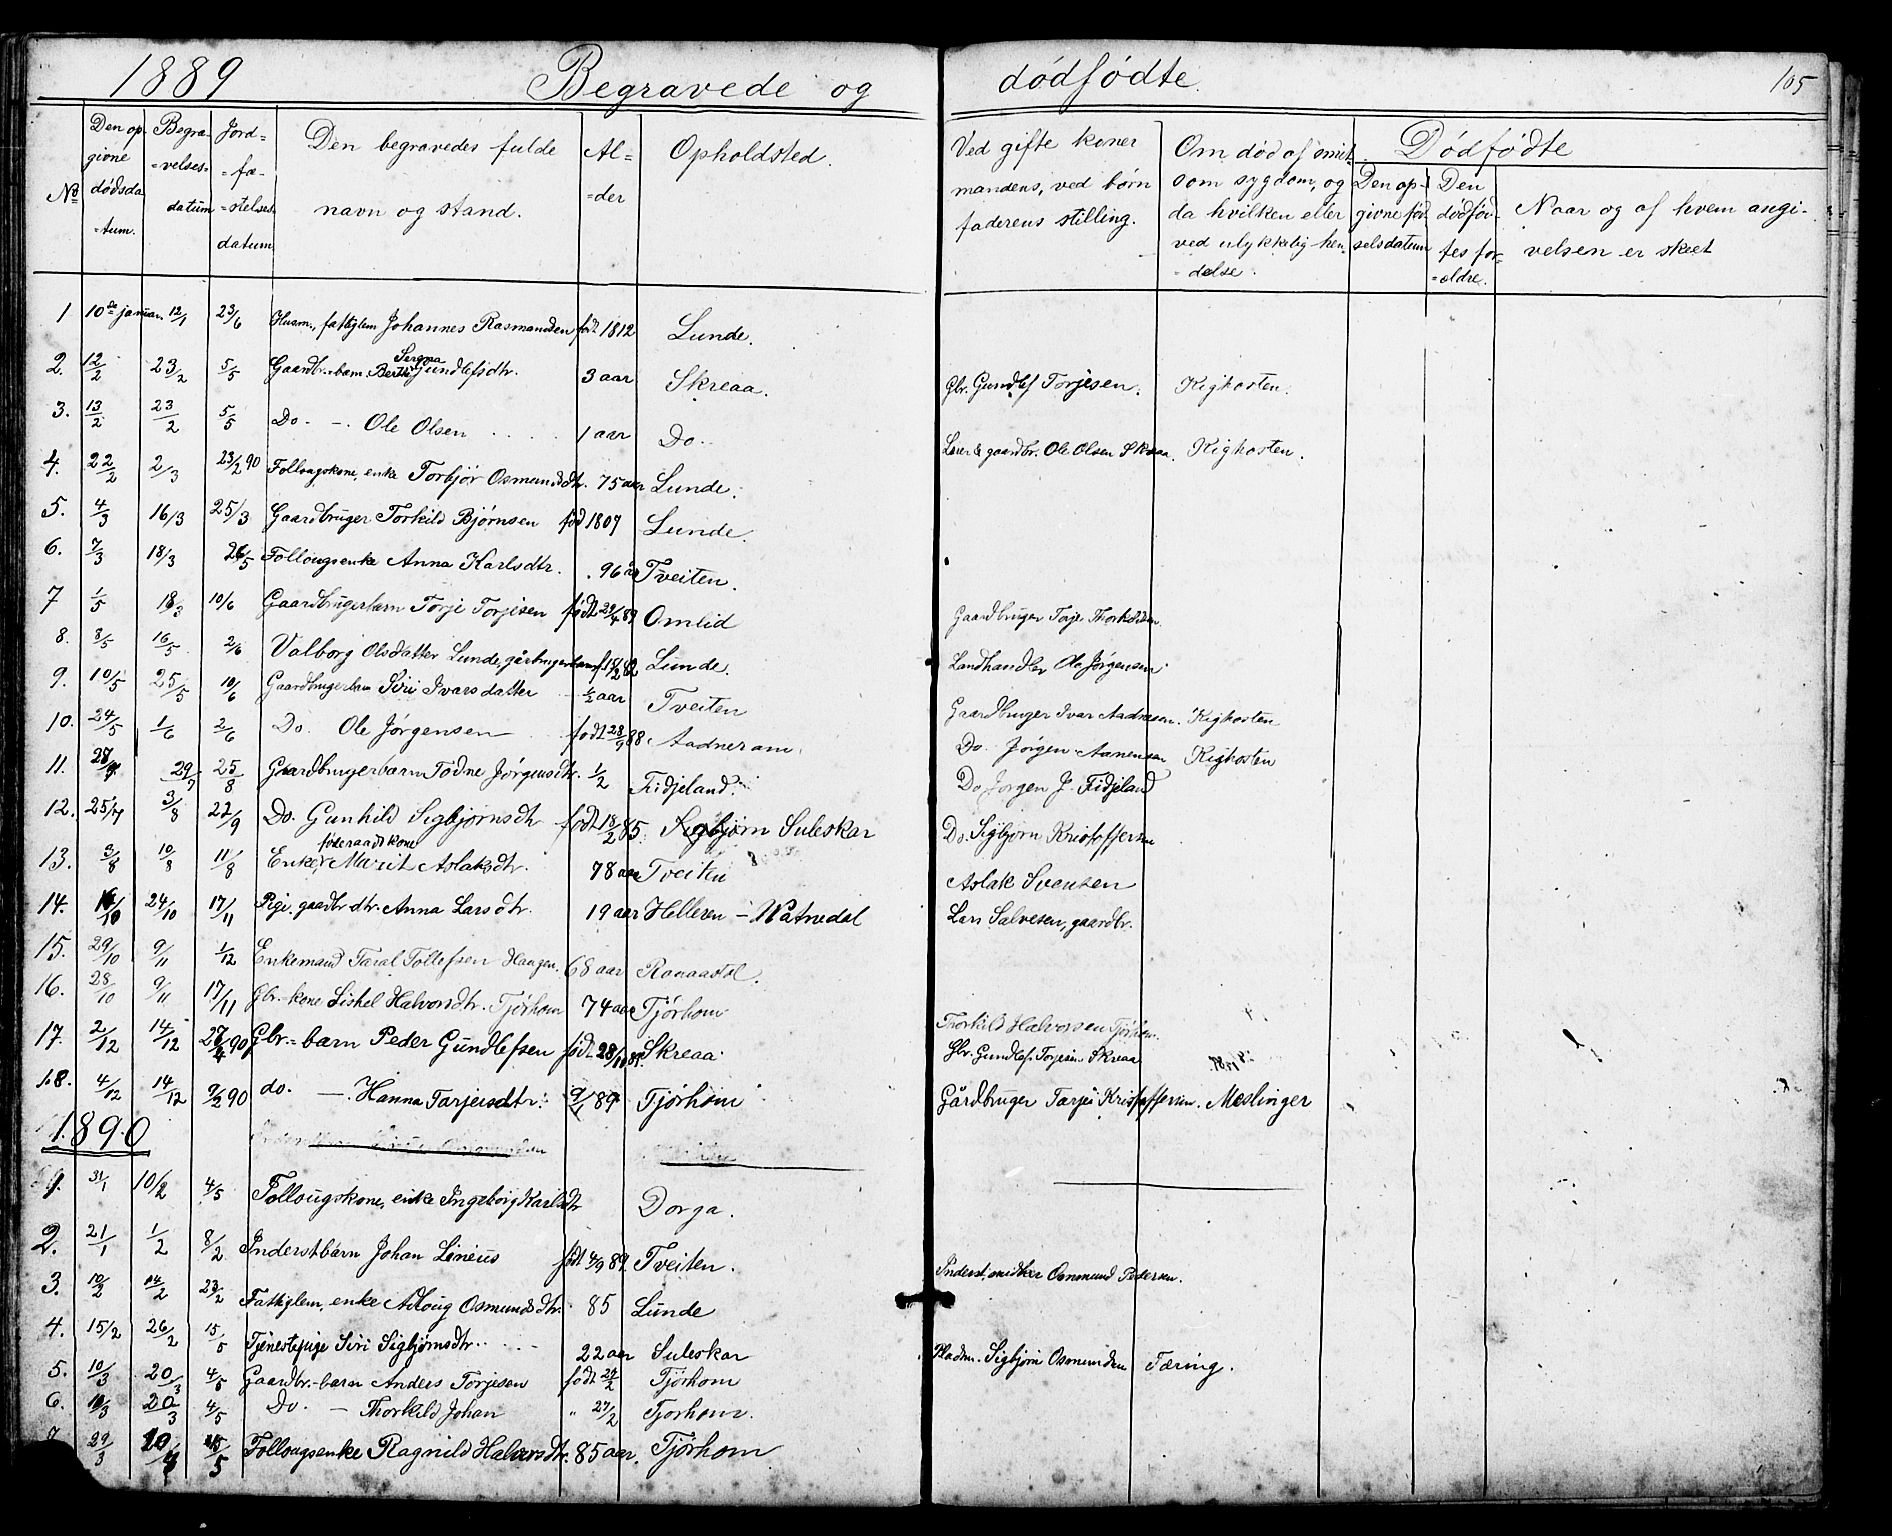 1889 Begravede og dødfødte. 105
No Den opgivne dødsdatum. Begra=velsesdatum Jord=fæ=stelses=datum Den begravedes fulde navn og stand. Al=der Opholdsted. Ved gifte koner mandens, ved børn faderens stilling. Om død af smitsom sygdom, og da hvilken eller ved ulykkelig hendelse. Dødfødte Den opgivne fødselsdatum Den dødfødtes for=ældre. Naar og af hvem angivelsen er skeet
1 10de januar. 12/1 23/6 Husm., fattiglem Johannes Rasmussen født 1812 Lunde.
2. 12/2 23/2 5/5 Gaardbr.-barn Berthe Serina Gundlefsdtr. 3 aar Skreaa. Gbr. Gundlef Torjesen. Kighosten.
3. 13/2 23/2 5/5 Do. - Ole Olsen 1 aar Do. Lærer & gaardbr. Ole Olsen Skreaa. Kighosten.
4. 22/2 2/3 23/2 90 Follougskone, enke Torbjør Osmundsdtr. 75 aar Lunde.
5. 4/3 16/3 25/3 Gaardbruger Torkild Bjørnsen fød 1807 Lunde.
6. 7/3 18/3 26/5 Follougsenke Anna Karlsdtr. 96 år Tveiten.
7 1/5 18/3 10/6 Gaardbrugerbarn Torje Torjesen født 29/4 89 Omlid Gaardbruger Torje Thorkildsen.
8. 8/5 16/5 2/6 Valborg Olsdatter Lunde, gårbrugerbarn f. 18/2 82 Lunde. Landhandler Ole Jørgensen
9. 10/5 25/5 10/6 Gaardbrugerbarn Siri Ivarsdatter ½ aar Tveiten Gaardbruger Ivar Aadnesen. Kighosten
10. 24/5 1/6 2/6 Do. Ole Jørgensen født 28/9 88 Aadneram. Do. Jørgen Aanensen Kighosten
11. 29/7 25/8 Gaardbrugerbarn Todne Jørgensdtr. ½ Fidjeland. Do Jørgen J. Fidjeland
12. 25/7 3/8 22/9 Do. Gunhild Sigbjørnsdtr født 18/2 85. Sigbjørn Suleskar Do. Sigbjørn Kristoffersen
13. 3/8 10/8 11/8 Enke, føderaadskone Marit Aslaksdtr. 78 aar Tveiten Aslak Svensen
14. 24/10 17/11 Pige, gaardbr dtr. Anna Larsdtr. 19 aar Helleren - Watnedal Lars Salvesen, gaardbr.
15. 29/10 9/11 1/12 Enkemand Taral Tollefsen Haugen. 68 aar
16. 28/10 9/11 17/11 Gbr.-kone Siskel Halvorsdtr. Tjørhom 74 aar Tjørhom Thorkild Halvorsen Tjørhom.
17. 2/12 14/12 90 Gbr.-barn Peder Gundlefsen født 28/10 89. Skreaa. Gbr. Gundlef Torjesen Skreaa
18. 4/12 14/12 9/2 90 do. - Hanna Tarjeisdtr. 9/1 89 Tjørhom Gårdbruger Tarjei Kristoffersen. Meslinger
1890
31/1 10/2 4/5 Follougskone, enke Ingeborg Karlsdtr Dorga.
2. 21/1 1/2 8/2 Inderstbarn Johan Linius født 4/9 89 Tveiten. Inderst, smidker Osmund Pedersen.
3. 10/2 14/2 23/2 Fattiglem, enke Adloug Osmundsdtr. 85 Lunde
4. 15/2 26/2 15/5 Tjenestepige Siri Sigbjørnsdtr. 22 aar Suleskar Pladsm. Sigbjørn Osmundsen Tæring.
5. 10/3 20/3 4/5 Gaardbr.-barn Anders Torjesen født 27/2 Tjørhom
6. 10/3 20/3 4/5 Do. - Thorkild Johan " 27/2 Tjørhom.
7. 29/3 10/4 15/5 Follougsenke Ragnild Halvorsdtr. 85 aar. Tjørhom